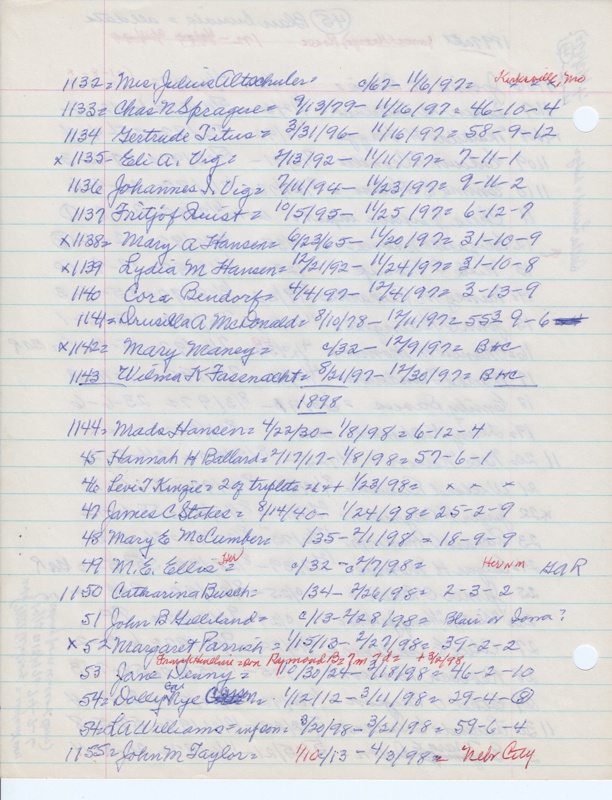 1132 = Mrs Julius Altschuler = c/67 - 11/6/97 = x x x Kirksville, Mo
1133 = Chas N Sprague = 9/13/79 - 11/16/97 = 46-10-4
1134 Gertrude Titus = 3/31/96 - 11/16/97 = 58-9-12
x 1135 - Eli A. Vig = 2/13/92 - 11/11/97 = 7-11-1
1136 Johannes I. Vig = 7/11/94 - 11/23/97 = 9-11-2
1137 Fritjof = 10/5/95 - 11/25/97 = 6-12-7
x 1138 = Mary A Hansen = 6/23/65 - 11/20/97 = 31-10-9
x 1139 Lydia M Hansen = 12/21/92 - 11/24/97 = 31-10-8
1140 Cora Bendorf = 4/4/97 - 12/4/97 = 3-13-9
1141 = Drusilla A McDonald = 8/10/78 - 12/11/97 = 553 9-6
x 1142 = Mary Maney = c/32 - 12/9/97 = B+C
1143 Wilma K Fasenacht = 8/21/97 - 12/30/97 = B+C
1898
1144 = Mads Hansen = 4/22/30 - 1/8/98 = 6-12-4
45 Hannah H Ballard = 2/17/17 - 1/8/98 = 57-6-1
46 Levi T Kingie = 2 of triplets = 1/23/98 = x x x
47 James C Stokes = 8/14/40 - 1/24/98 = 25-2-9
48 Mary E McCumber = /35 - 2/1/98 = 18-9-9
49 M. E. Ellis = c/32 - c 2/7/98 = GAR
1150 Catharina Busch = /34 - 2/26/98 = 2-3-2
51 John B Gilliland = c/13 - 2/28/98 = Blair or Iowa?
x 52 Margaret Parrish = 1/15/13 - 2/27/98 = 39-2-2
Raymond B = 7m 7d = + 3/2/98
53 Jane Denny = 10/30/24 - 3/18/98 = 46-2-10
54 = Dolly Nye = 1/12/12 - 3/11/98 = 29-4-8
54 L A Williams = infant = 3/20/98 - 3/21/98 = 59-6-4
1155 = John M Taylor = 1/10/13 - 4/3/98 = Nebr City